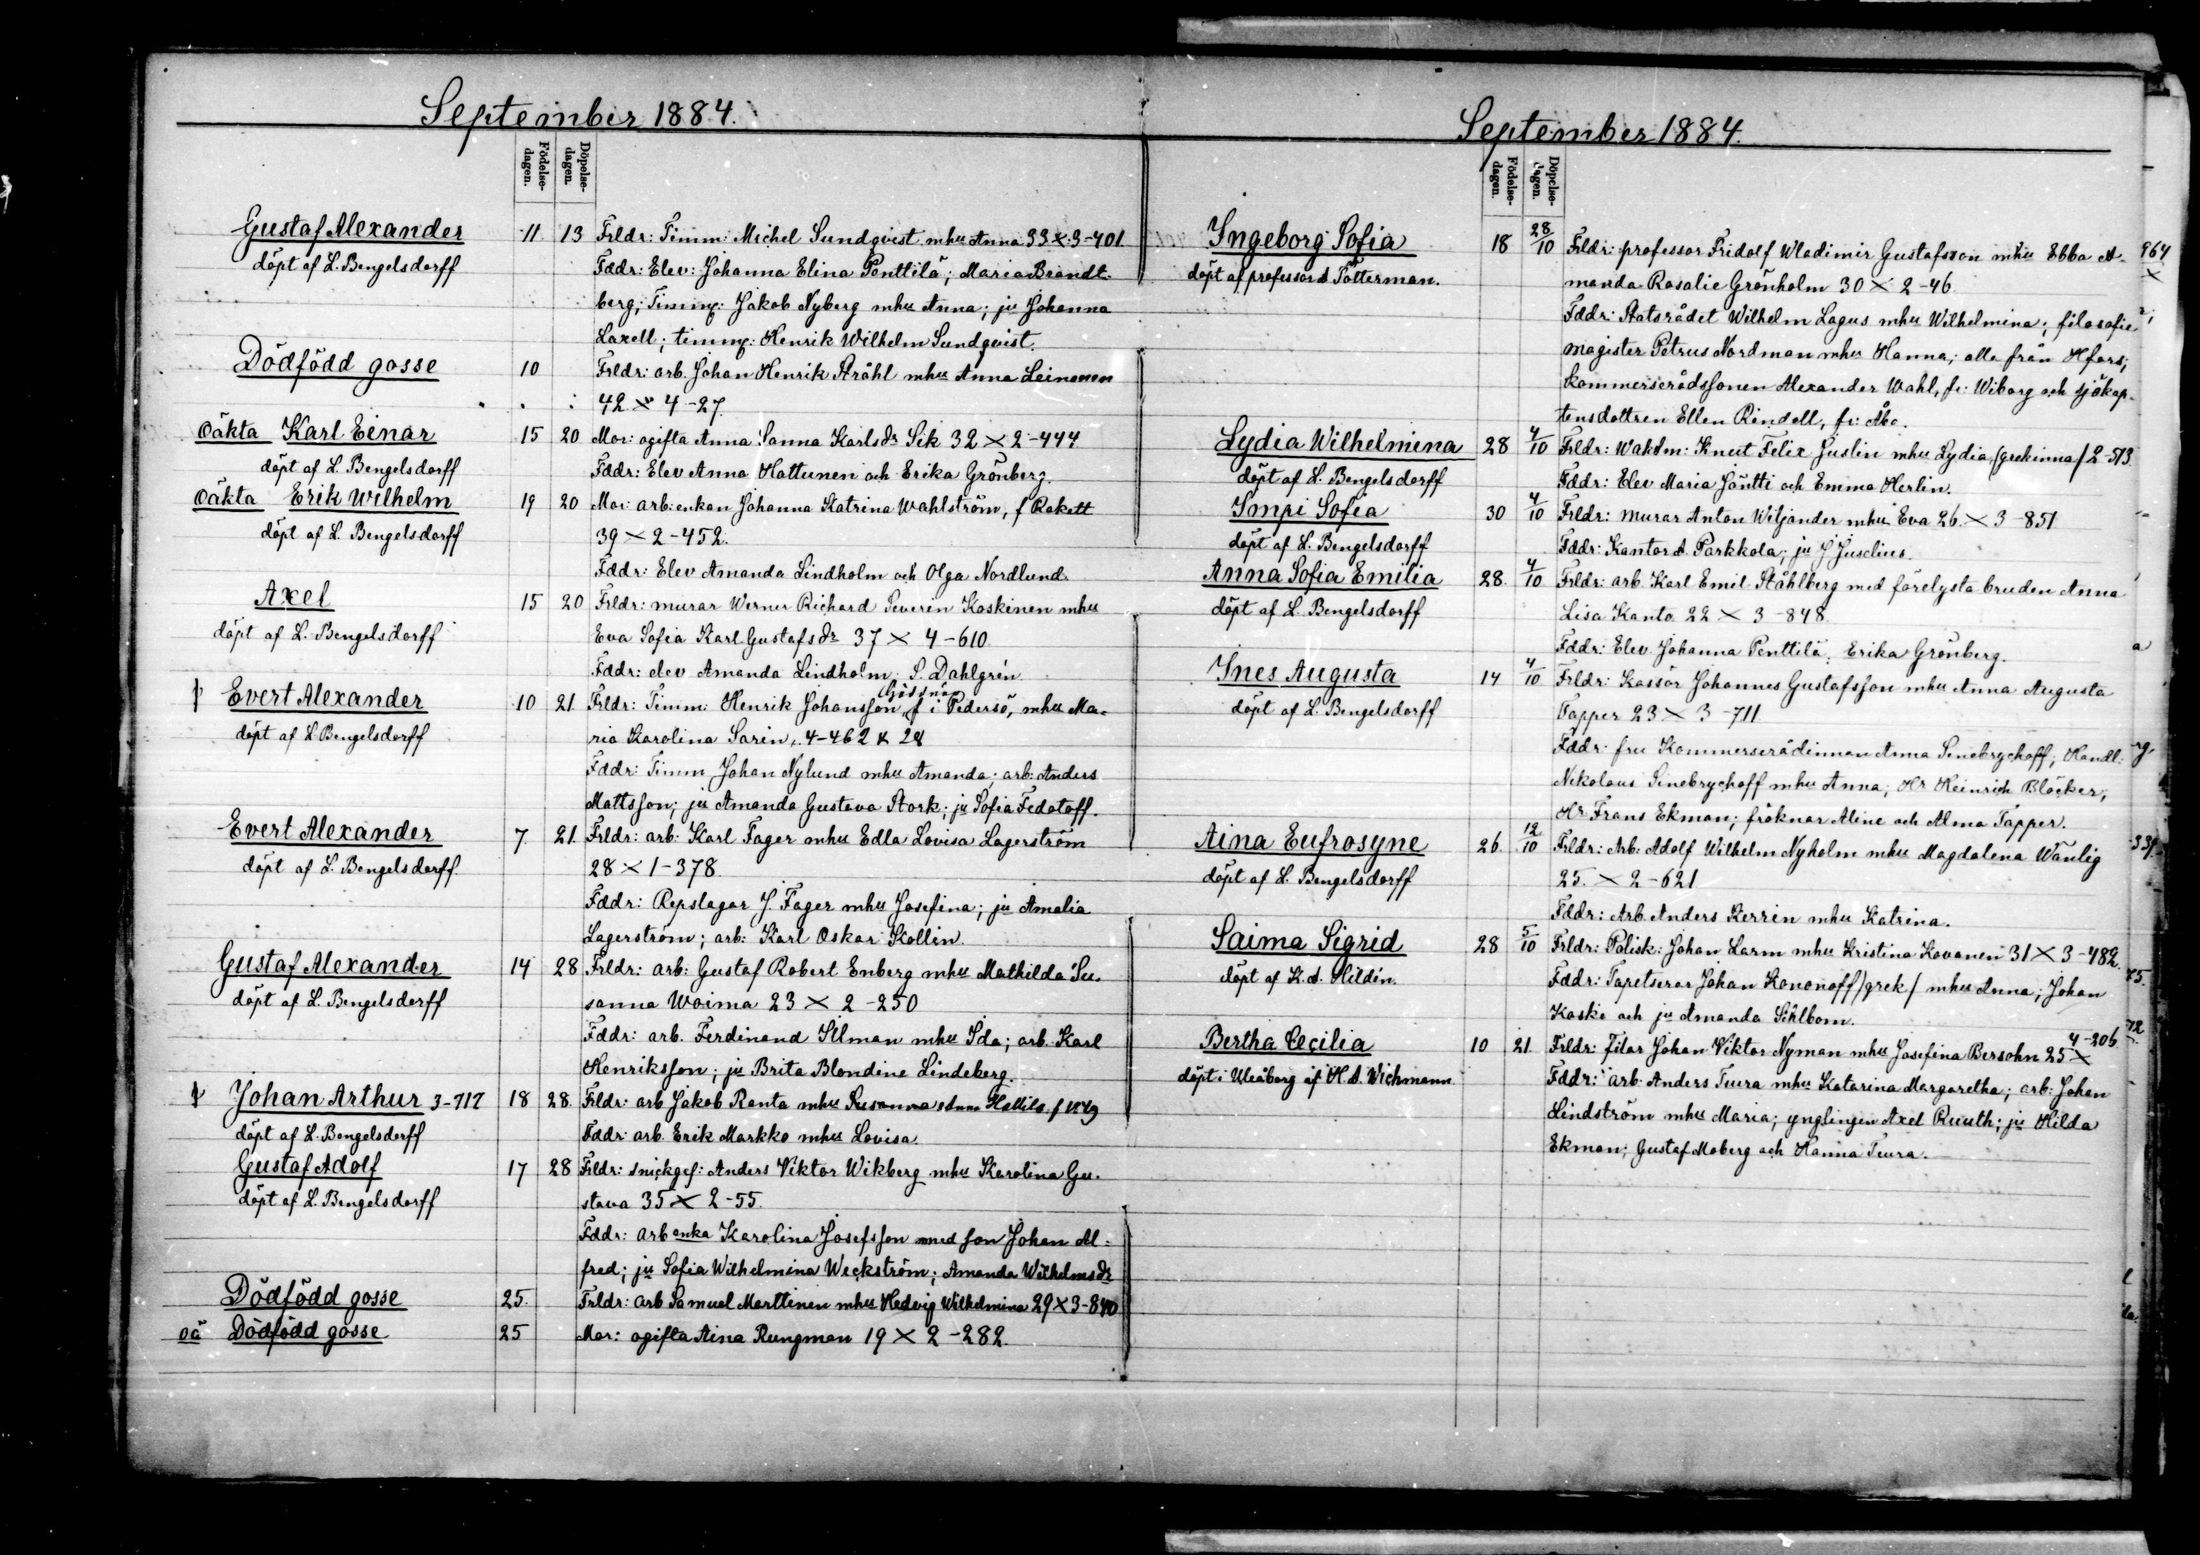 September 1884.
Födelse-dagen. Döpelse-dagen.
Gustaf Alexander 11 13 Frldr: Timm: Michel Sundqvist mhu Anna 33 x 3-401
döpt af L. Bengelsdorff Fddr: Elev: Johanna Elina Penttilä; Maria Brandt-
berg; Timmy: Jakob Nyberg mhu Anna; ju Johanna
Laxell; timmy: Henrik Wilhelm Sundqvist.
Dödfödd gosse 10 Frldr: arb. Johan Henrik Stråhl mhu Anna Leinonen
42 x 4-27.
Oäkta Karl Einar 15 20 Mor: ogifta Anna Sanna Karlsdr Sik 32 x 2-444
döpt af L. Bengelsdorff Fddr: Elev Anna Hattunen och Erika Grönberg.
Oäkta Erik Wilhelm 19 20 Mor: arb: enkan Johanna Katrina Wahlström, f Rakett
döpt af L. Bengelsdorff 39 x 2-452.
Fddr: Elev Amanda Lindholm och Olga Nordlund.
Axel 15 20 Frldr: murar Werner Richard Severin Koskinen mhu
döpt af L. Bengelsdorff Eva Sofia Karl Gustafsdr 37 x 4-610.
Fddr: elev Amanda Lindholm; S. Dahlgrén.
† Evert Alexander 10 21 Frldr: Timm: Henrik Johansson f i Pedersö, mhu Ma-
döpt af L. Bengelsdorff ria Karolina Sarin, 4-462 x 28
Fddr: Timm Johan Nylund mhu Amanda; arb: Anders
Mattsson; ju Amanda Gustava Stork; ju Sofia Fedotoff.
Evert Alexander 7. 21. Frldr: arb: Karl Fager mhu Edla Lovisa Lagerström
döpt af L. Bengelsdorff. 28 x 1-378.
Fddr: Repslagar J. Fager mhu Josefina; ju Amalia
Lagerström; arb: Karl Oskar Kollin.
Gustaf Alexander 14 28 Frldr: arb: Gustaf Robert Enberg mhu Mathilda Su-
döpt af L. Bengelsdorff sanna Woima 23 x 2-250
Fddr: arb. Ferdinand Illman mhu Ida; arb. Karl
Henriksson; ju Brita Blondine Lindeberg.
† Johan Arthur 3-717 18 28. Frldr: arb Jakob Ranta mhu Susanna
döpt af L. Bengelsdorff Fddr: arb. Erik Markko mhu Lovisa.
Gustaf Adolf 17 28 Frldr: snickgef: Anders Viktor Wikberg mhu Karolina Gu-
döpt af L. Bengelsdorff stava 35 x 2-55.
Fddr: arb enka Karolina Josefsson med son Johan Al-
fred; ju Sofia Wilhelmina Weckström; Amanda Wilhelmsdr
Dödfödd gosse 25. Frldr: arb Samuel Marttinen mhu Hedvig Wilhelmina 29 x 3-840
oä Dödfödd gosse 25 Mor: ogifta Aina Rungman 19 x 2-282.
September 1884.
Födelse-dagen. Döpelse-dagen.
Ingeborg Sofia 18 28/10 Frldr: professor Fridolf Wladimir Gustafsson mhu Ebba A-
döpt af professor A Tötterman. manda Rosalie Grönholm 30 x 2-46
Fddr: Statsrådet Wilhelm Lagus mhu Wilhelmina; filosofie
magister Petrus Nordman mhu Hanna; alla från Hfors;
kommerserådssonen Alexander Wahl, fr: Wiborg och sjökap-
tensdottren Ellen Rindell, fr: Åbo.
Lydia Wilhelmina 28 4/10 Frldr: Waktm: Knut Felix Juslin mhu Lydia (grekinna) 2-513
döpt af L. Bengelsdorff Fddr: Elev Maria Jäntti och Emma Herlin.
Impi Sofia 30 4/10 Frldr: murar Anton Wiljander mhu Eva 26. x 3-851
döpt af L. Bengelsdorff Fddr: Kantor A. Parkkola; ju J Juselius.
Anna Sofia Emilia 28. 4/10 Frldr: arb. Karl Emil Ståhlberg med förelysta bruden Anna
döpt af L. Bengelsdorff Lisa Kanto 22 x 3-848.
Fddr: Elev Johanna Penttilä; Erika Grönberg.
Ines Augusta 14 4/10 Frldr: Kassör Johannes Gustafsson mhu Anna Augusta
döpt af L. Bengelsdorff Tapper 23 x 3-711
Fddr: fru Kommerserådinnan Anna Sinebrychoff; Handl:
Nikolaus Sinebrychoff mhu Anna; Hr Heinrich Blöcker;
Hr Frans Ekman; fröknar Aline och Alma Tapper.
Aina Eufrosyne 26. 12/10 Frldr: Arb: Adolf Wilhelm Nyholm mhu Magdalena Wänlig
döpt af L. Bengelsdorff 25. x 2-621
Fddr: Arb. Anders Kerrin mhu Katrina.
Saima Sigrid 28 5/10 Frldr: Polisk: Johan Larm mhu Kristina Kovanen 31 x 3-482.
döpt af K. A. Hildén. Fddr: Tapetserar Johan Kononoff (grek) mhu Anna; Johan
Koski och ju Amanda Sihlbom.
Bertha Cecilia 10 21. Frldr: filar Johan Viktor Nyman mhu Josefina Bersohn 25 x 4-206
döpt i Uleåborg af H. A. Wichmann Fddr: arb: Anders Tuura mhu Katarina Margaretha; arb: Johan
Lindström mhu Maria; ynglingen Axel Ruuth; ju Hilda
Ekman; Gustaf Moberg och Hanna Tuura.